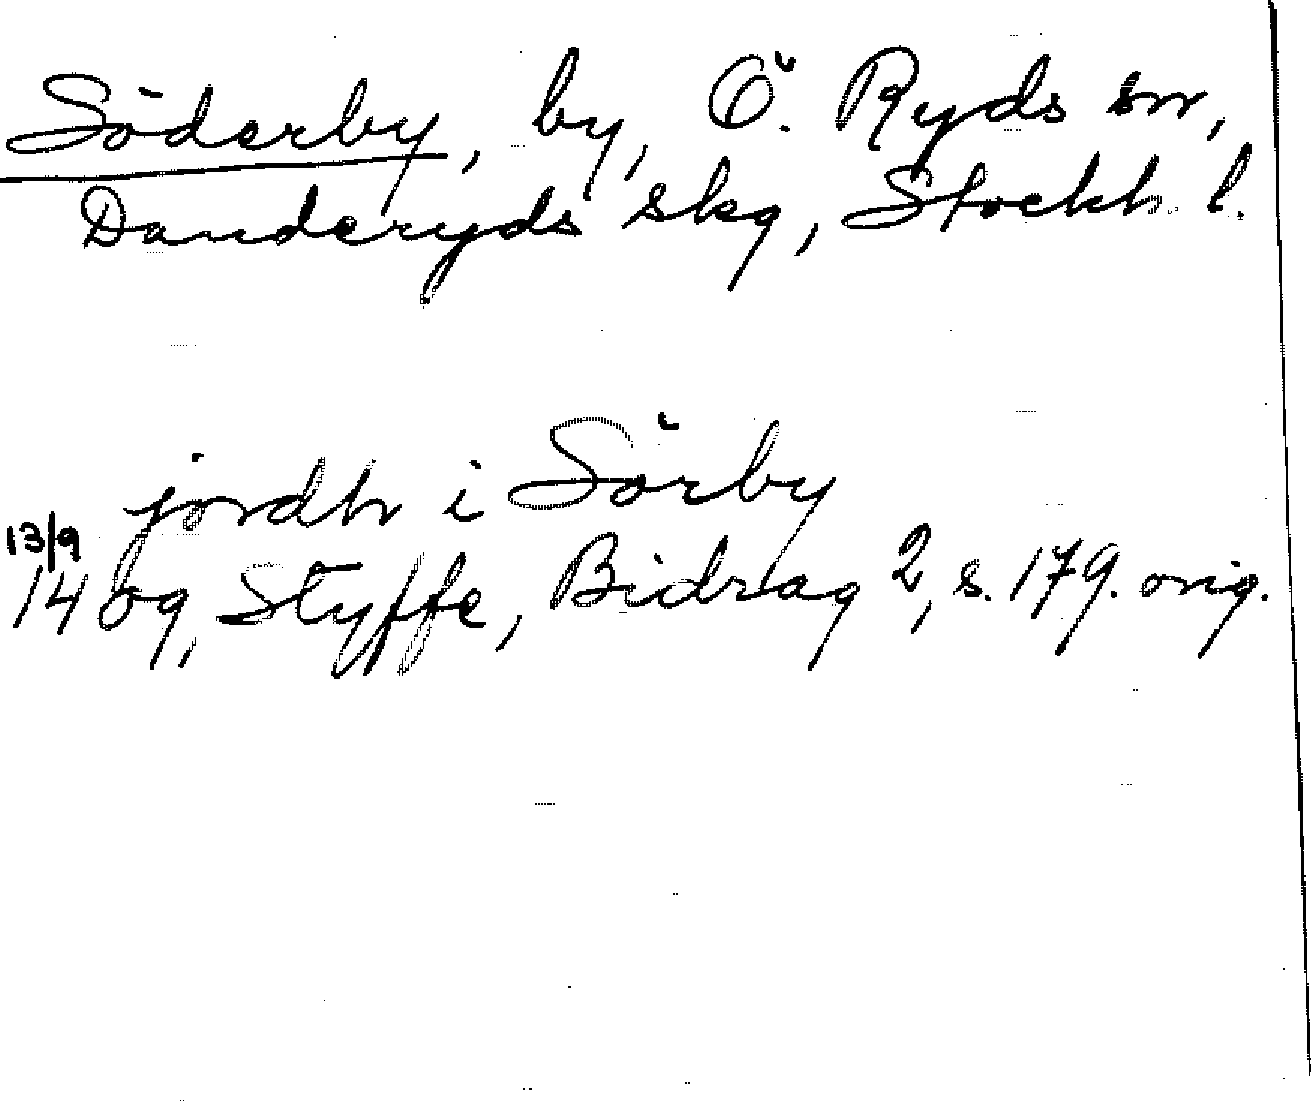 Söderby, by, Ö. Ryds sn,
Danderyds skg, Stockh. l.
jördh i Sörby
13/9
1409, Styffe, Bidrag 2, s. 179. orig.